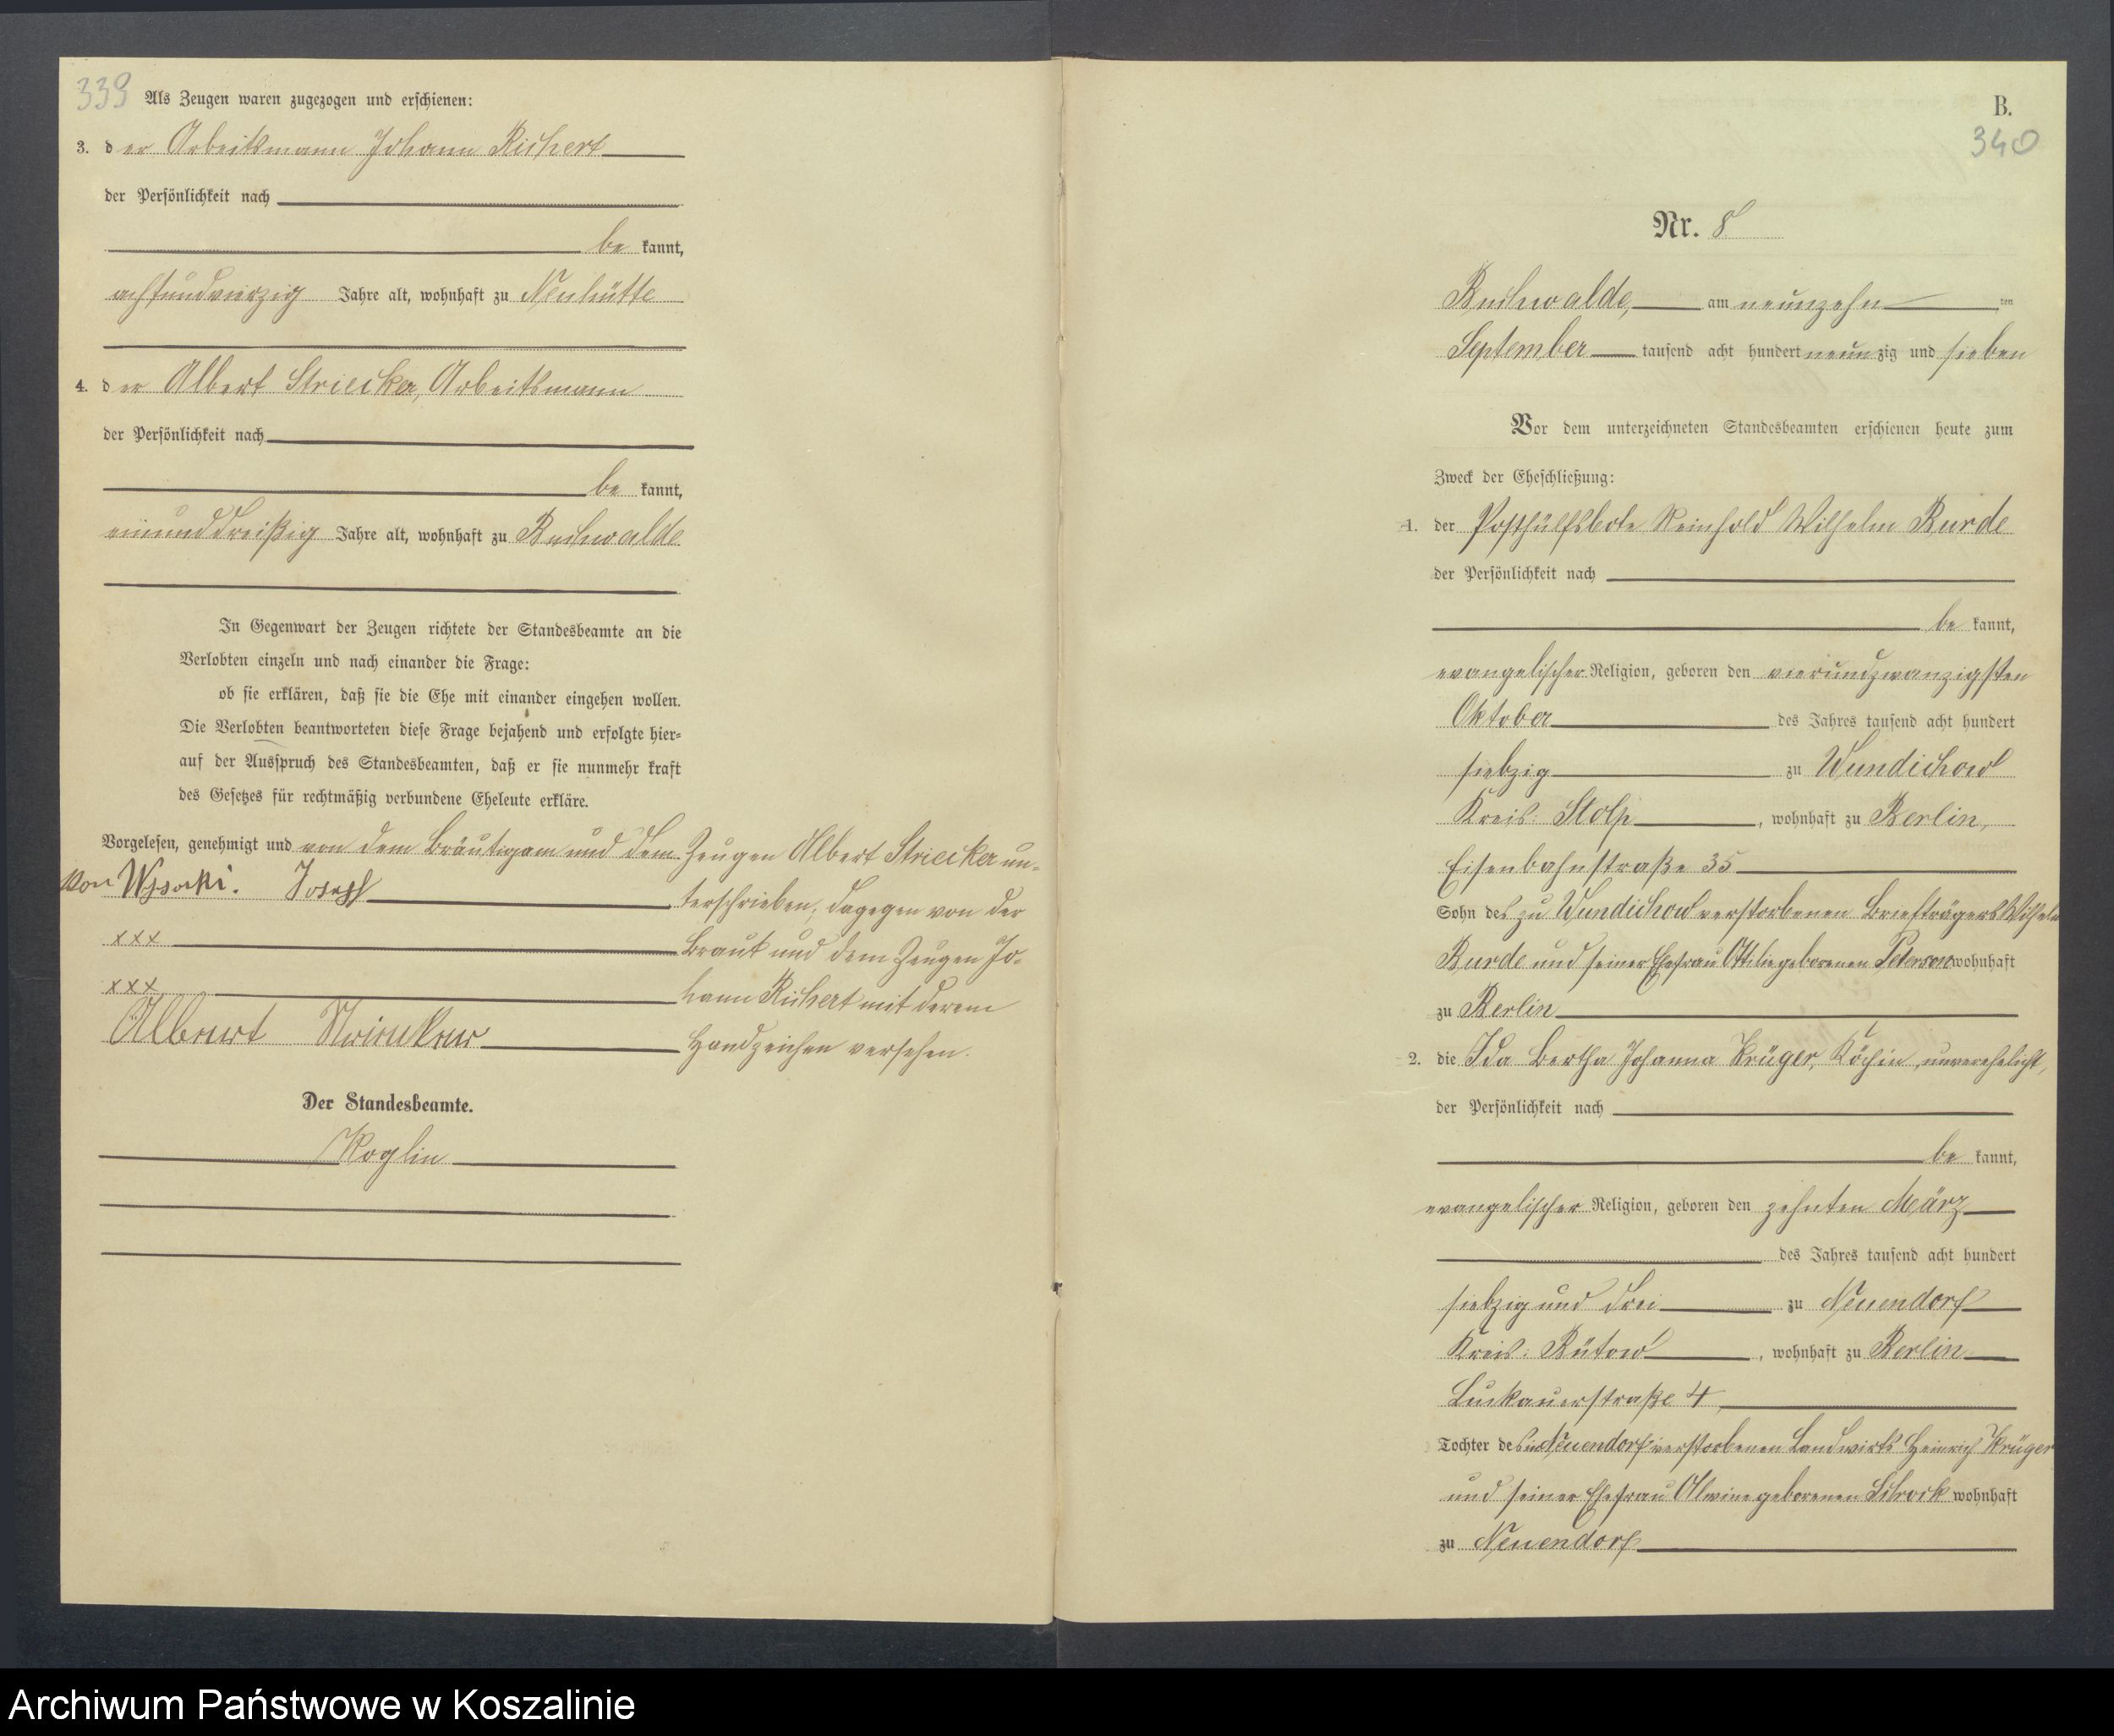 339
Als Zeugen waren zugezogen und erschienen:
3. der Arbeitsmann Johann Richert
der Persönlichkeit nach
be kannt,
achtundvierzig Jahre alt, wohnhaft zu Neuhütte
4. der Albert Striecker, Arbeitsmann
der Persönlichkeit nach
be kannt,
einunddreißig Jahre alt, wohnhaft zu Buchwalde
In Gegenwart der Zeugen richtete der Standesbeamte an die
Verlobten einzeln und nach einander die Frage:
ob sie erklären, daß sie die Ehe mit einander eingehen wollen.
Die Verlobten beantworteten diese Frage bejahend und erfolgte hier-
auf der Ausspruch des Standesbeamten, daß er sie nunmehr kraft
des Gesetzes für rechtmäßig verbundene Eheleute erkläre.
Vorgelesen, genehmigt und von dem Bräutigam und dem Zeugen Albert Striecker un-
von Wysocki. Joseph terschrieben, dagegen von der
xxx Braut und dem Zeugen Jo-
xxx hann Richert mit deren
Albert Striecker Handzeichen versehen.
Der Standesbeamte.
Koglin
B.
340
Nr. 8
Buchwalde, am neunzehn ten
September tausend acht hundert neunzig und sieben
Vor dem unterzeichneten Standesbeamten erschienen heute zum
Zweck der Eheschließung:
1. der Posthülfsbote Reinhold Wilhelm Burde
der Persönlichkeit nach
be kannt,
evangelischer Religion, geboren den vierundzwanzigsten
Oktober des Jahres tausend acht hundert
siebzig zu Wundichow
Kreis: Stolp, wohnhaft zu Berlin,
Eisenbahnstraße 35
Sohn des zu Wundichow verstorbenen Briefträgers Wilhelm
Burde und seiner Ehefrau Ottilie geborenen Peterson wohnhaft
zu Berlin
2. die Ida Bertha Johanna Krüger, Köchin, unverehelicht,
der Persönlichkeit nach
be kannt,
evangelischer Religion, geboren den zehnten März
des Jahres tausend acht hundert
siebzig und drei zu Neuendorf
Kreis: Bütow, wohnhaft zu Berlin
Luckauerstraße 4,
Tochter des in Neuendorf verstorbenen Landwirts Heinrich Krüger
und seiner Ehefrau Alwine geborenen Schrock wohnhaft
zu Neuendorf
Archiwum Państwowe w Koszalinie